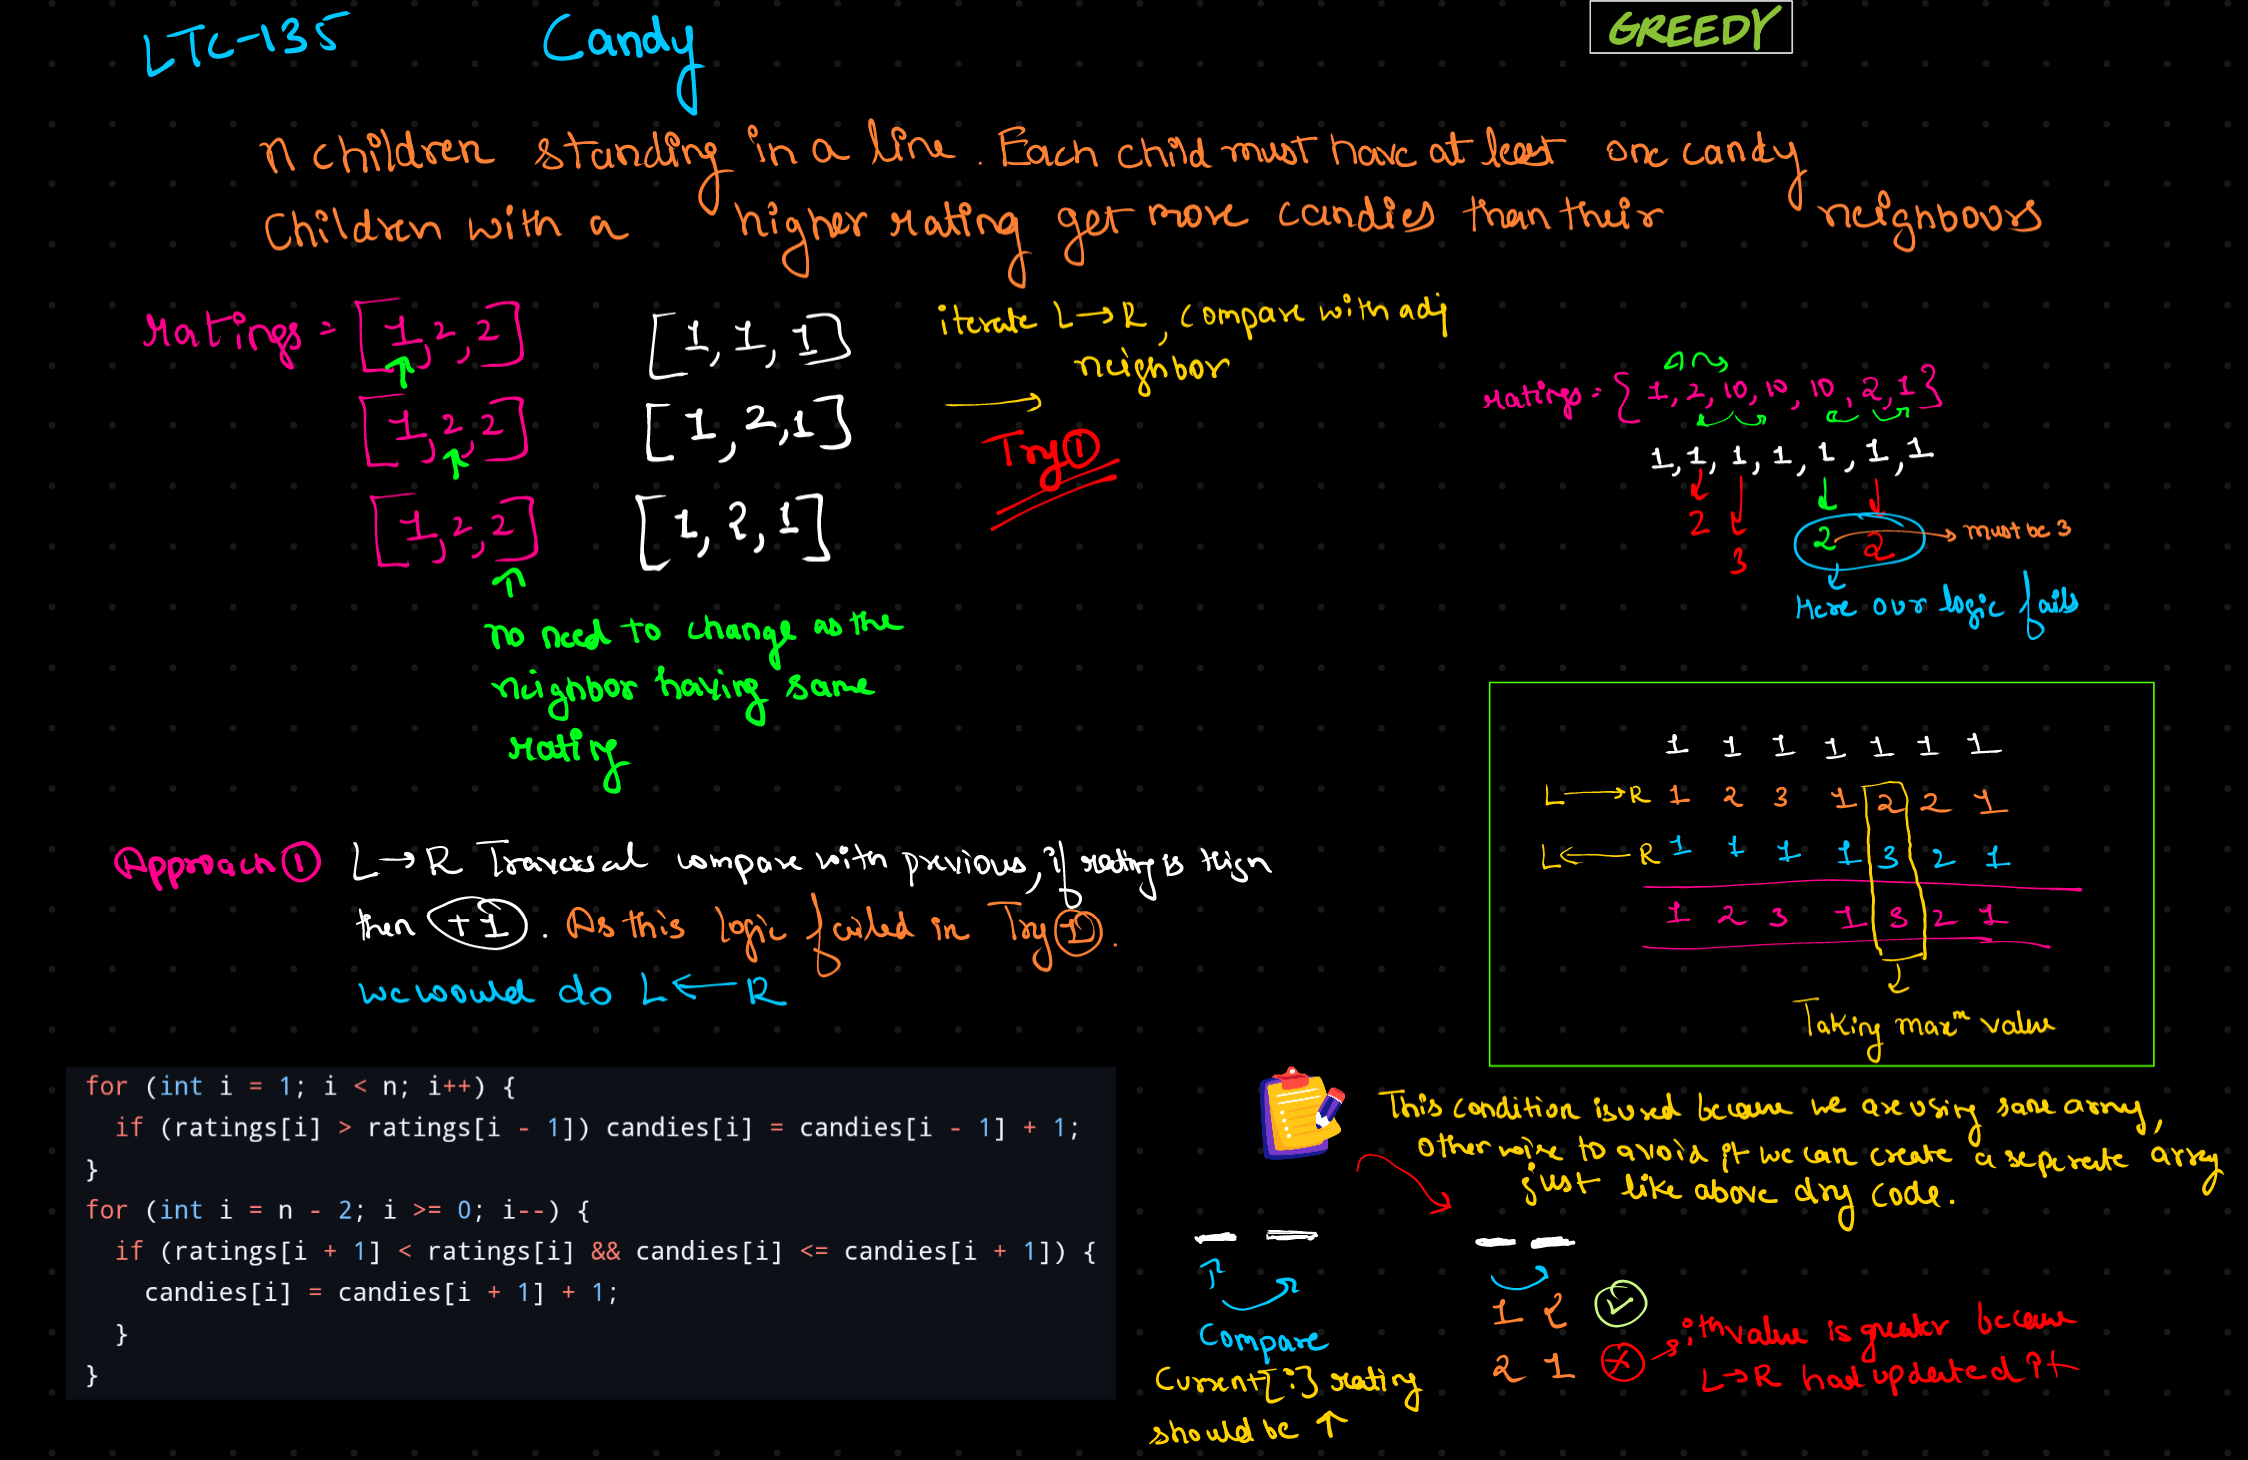 LTC-135
Candy
GREEDY
n children standing in a line. Each child must have at least one candy
Children with a higher rating get more candies than their neighbours
ratings = [1, 2, 2]
[1, 1, 1]
[1, 2, 2]
[1, 2, 1]
[1, 2, 2]
[1, 2, 1]
no need to change as the
neighbor having same
rating
iterate L→R, compare with adj
neighbor
Try ①
ratings = { 1, 2, 10, 10, 10, 2, 1 }
1, 1, 1, 1, 1, 1, 1
2
3
2 2 → must be 3
Here our logic fails
1 1 1 1 1 1 1
L→R 1 2 3 1 2 2 1
L←R 1 1 1 1 3 2 1
1 2 3 1 3 2 1
Taking maxᵐ value
Approach ① L→R Traversal compare with previous, if rating is high
then +1. As this logic failed in Try ①.
we would do L←R
for (int i = 1; i < n; i++) {
if (ratings[i] > ratings[i - 1]) candies[i] = candies[i - 1] + 1;
}
for (int i = n - 2; i >= 0; i--) {
if (ratings[i + 1] < ratings[i] && candies[i] <= candies[i + 1]) {
candies[i] = candies[i + 1] + 1;
}
}
This condition is used because we are using same array,
otherwise to avoid it we can create a seperate array
just like above dry code.
Compare
Current[i] rating
should be ↑
1 2 ✓
2 1 ✗ → ith value is greater because
L→R had updated it